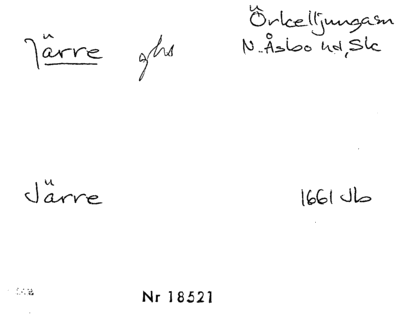 Järre ghs Örkelljungasn
N. Åsbo hd, Sk
Järre 1661 Jb
Nr 18521